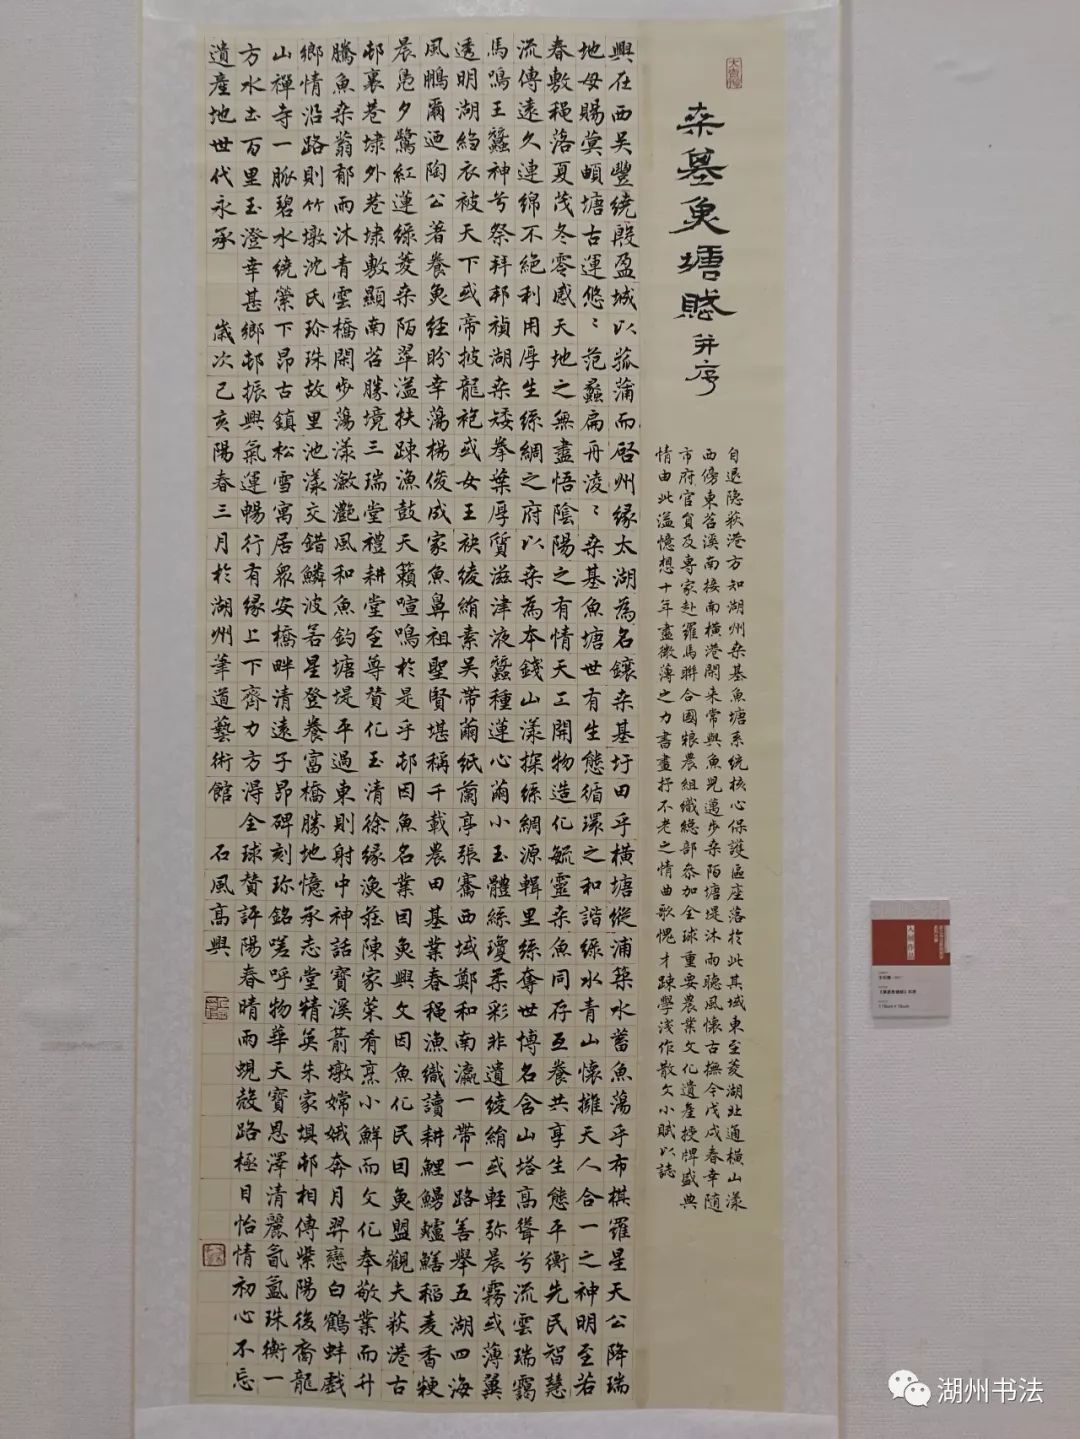 桒基魚塘賦并序
自退隐荻港方知湖州桒基魚塘系統核心保護區座落於此其域東至菱湖北通橫山漾
西傍東苕溪南接南橫港閑来常與魚兒邁步桒陌塘堤沐雨聽風懷古撫今戊戌春幸随
市府官員及專家赴羅馬聯合國粮農組織總部叅加全球重要農業文化遺産授牌盛典
情由此溢憶想十年盡微薄之力書畫抒不老之情曲歌愧才踈學淺作散文小賦以誌
興在西吴豐绕殷盈城以菰蒲而啓州缘太湖為名鑲桒基圩田乎橫塘縱浦築水蓄魚蕩乎布棋羅星天公降瑞
地母賜蓂頔塘古運悠〻范蠡扁舟淩〻桒基魚塘世有生態循環之和諧緑水青山懷擁天人合一之神明至若
春敷穐落夏茂冬零感天地之無盡悟陰陽之有情天工開物造化毓靈桒魚同存互養共享生態平衡先民智慧
流傳遠久連绵不絶利用厚生絲綢之府以桒為本錢山漾探絲綢源輯里絲奪世博名含山塔高聳兮流雲瑞靄
馬鳴王蠶神兮祭拜邦禎湖桒矮拳葉厚質滋津液蠶種蓮心繭小玉體絲瓊柔彩非遺綾絹或輕弥晨霧或薄蒖
透明湖縐衣被天下或帝披龍袍或女王袂綾絹素吴带繭紙蘭亭張騫西域鄭和南瀛一帶一路善舉五湖四海
風鵬爾迺陶公著養魚经盼幸蕩楊俊成家魚鼻祖聖賢堪稱千載農田基業春穐漁織讀耕鯉鰻鱸鱔稻麦香粳
晨凫夕鷺紅蓮緑菱桒陌翠溢扶踈漁鼓天籟喧鳴於是乎邨因魚名業因魚興文因魚化民因魚盟觀夫荻港古
邨裏巷埭外巷埭敷顯南苕勝境三瑞堂禮耕堂至尊贊化玉清徐缘漁莊陳家菜肴烹小鮮而文化奉敬業而升
騰魚桒蓊郁而沐青雲橋閑步蕩漾瀲灔風和魚鈞塘堤平過東則射中神話寶溪箭墩嫦娥奔月羿戀白鶴蚌戲
鄉情沿路則竹墩沈氏珍珠故里池漾交錯鱗波若星登養富橋勝地憶承志堂精英朱家埧邨相傳紫陽後裔龍
山禪寺一脈碧水绕縈下昂古鎮松雪寓居衆安橋畔清遠子昂碑刻珎銘嗟呼物華天寶恩澤清麗氤氲珠衡一
方水土百里玉澄幸甚鄉邨振興氣運暢行有缘上下齊力方淂全球贊評陽春晴雨蜆殼路極目怡情初心不忘
遺産地世代永承
歲次己亥陽春三月於湖州筆道藝術館
石風高興
湖州书法